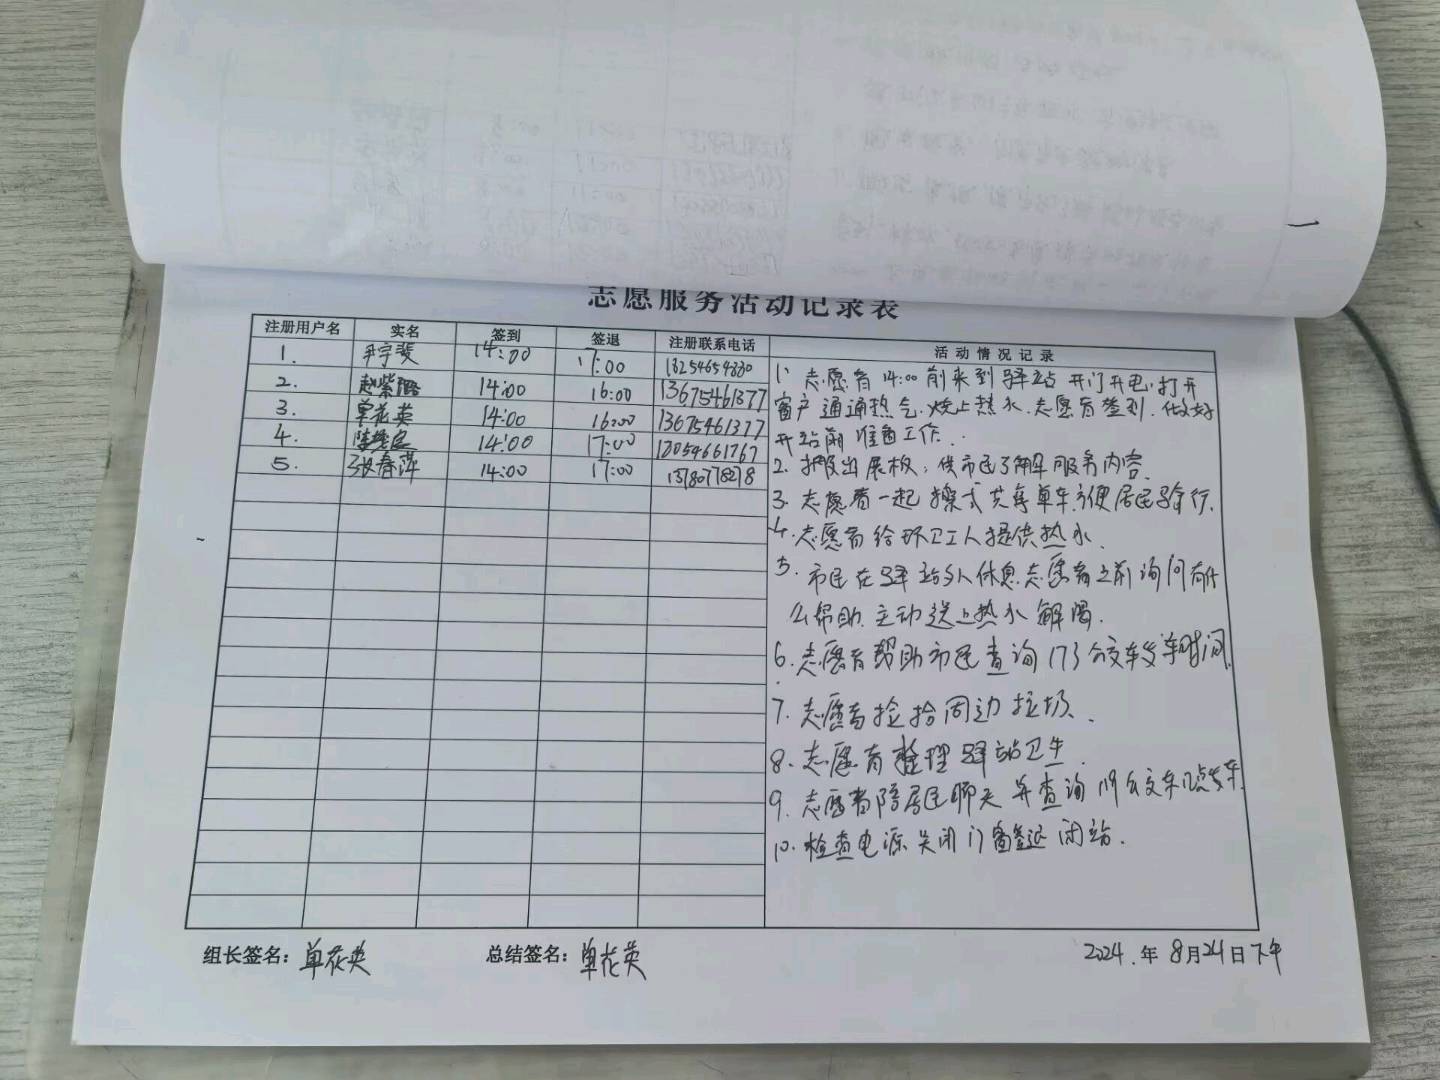 志愿服务活动记录表
注册用户名 实名 签到 签退 注册联系电话 活动情况记录
1. 尹宇斐 14:00 17:00 13254654880
2. 赵紫璐 14:00 16:00 13675461377
3. 单花英 14:00 16:00 13675461377
4. 14:00 17:00
5. 张春萍 14:00 17:00
1、志愿者14:00前来到驿站 开门开电,打开
窗户通通热气.烧上热水.志愿者签到.做好
开站前准备工作..
2. 搬出展板,供市民了解服务内容.
3. 志愿者一起擦式共享单车方便居民骑行.
4.志愿者给环卫工人提供热水.
5. 市民在驿站外休息志愿者上前询问有什
么帮助.主动送上热水解渴.
6.志愿者帮助市民查询173公交车发车时间.
7. 志愿者捡拾周边垃圾.
8. 志愿者整理驿站卫生.
9. 志愿者陪居民聊天并查询 公交车几点发车.
10.检查电源关闭门窗签退闭站.
组长签名:单花英 总结签名:单花英 2024.年8月24日下午